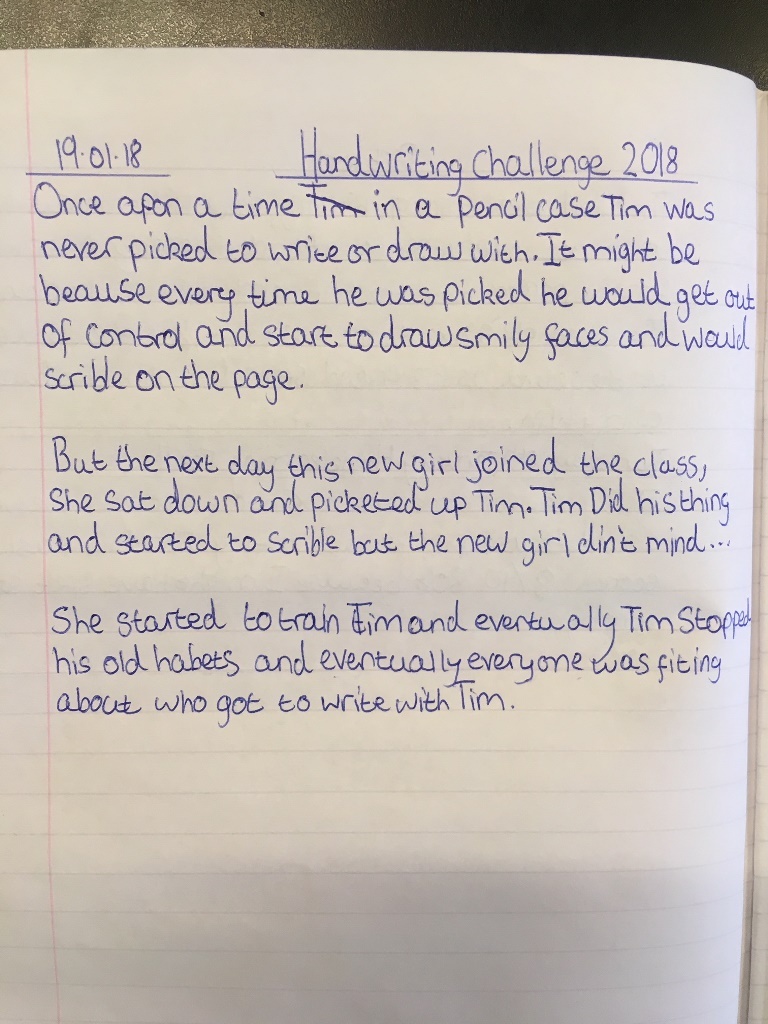 19.01.18 Handwriting Challenge 2018
Once apon a time Tim in a pencil case Tim was
never picked to write or draw with. It might be
beause every time he was picked he would get out
of control and start to draw smily faces and would
scrible on the page.
But the next day this new girl joined the class,
She sat down and picketed up Tim. Tim Did his thing
and started to scrible but the new girl din't mind...
She started to train Tim and eventually Tim Stopped
his old habets and eventually everyone was fiting
about who got to write with Tim.